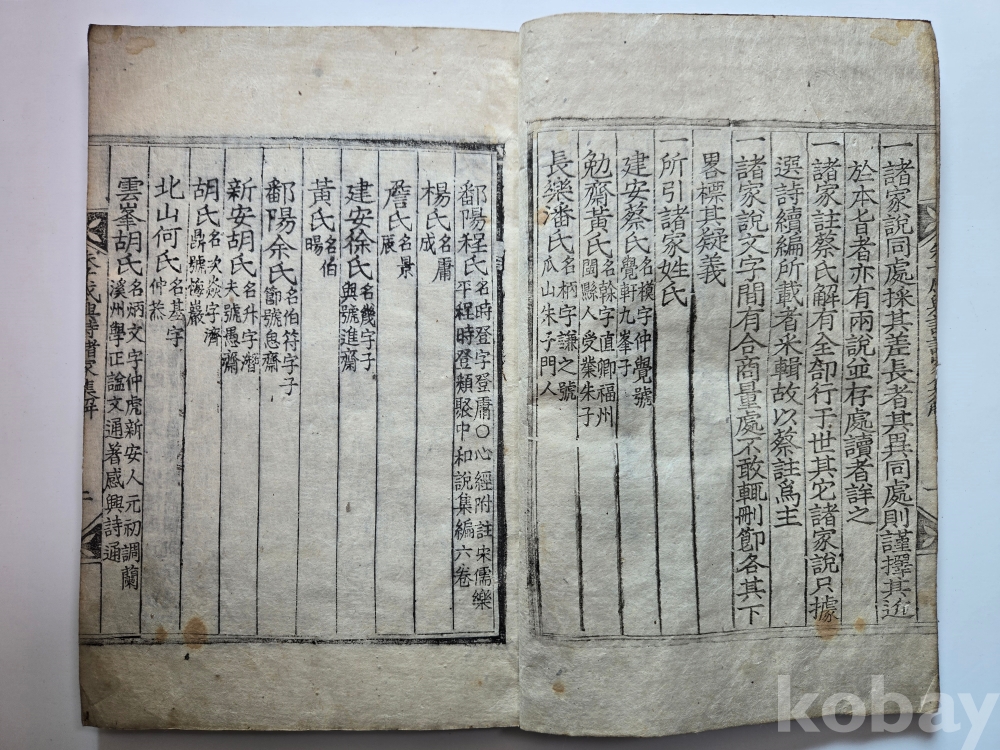 一諸家說同處採其差長者其異同處則謹擇其近
於本旨者亦有兩說並存處讀者詳之
一諸家註蔡氏解有全部行于世其它諸家說只據
選詩續編所載者釆輯故以蔡註爲主
一諸家說文字間有合商量處不敢輒刪節各其下
畧標其疑義
一所引諸家姓氏
建安蔡氏名模字仲覺號
覺軒九峯子
勉齋黃氏名榦字直卿福州
閩縣人受業朱子
長樂番氏名柄字謙之號
瓜山朱子門人
鄱陽程氏名時登字登庸○心經附註宋儒樂
平程時登類聚中和說集編六卷
楊氏名庸
成
詹氏名景
辰
建安徐氏名幾字子
與號進齋
黃氏名伯
暘
鄱陽余氏名伯符字子
節號思齋
新安胡氏名升字潛
夫號愚齋
胡氏名次焱字濟
鼎號梅巖
北山何氏名基字
仲恭
雲峯胡氏名炳文字仲虎新安人元初調蘭
溪州學正謚文通著感興詩通
感興詩諸家集解
二
kobay